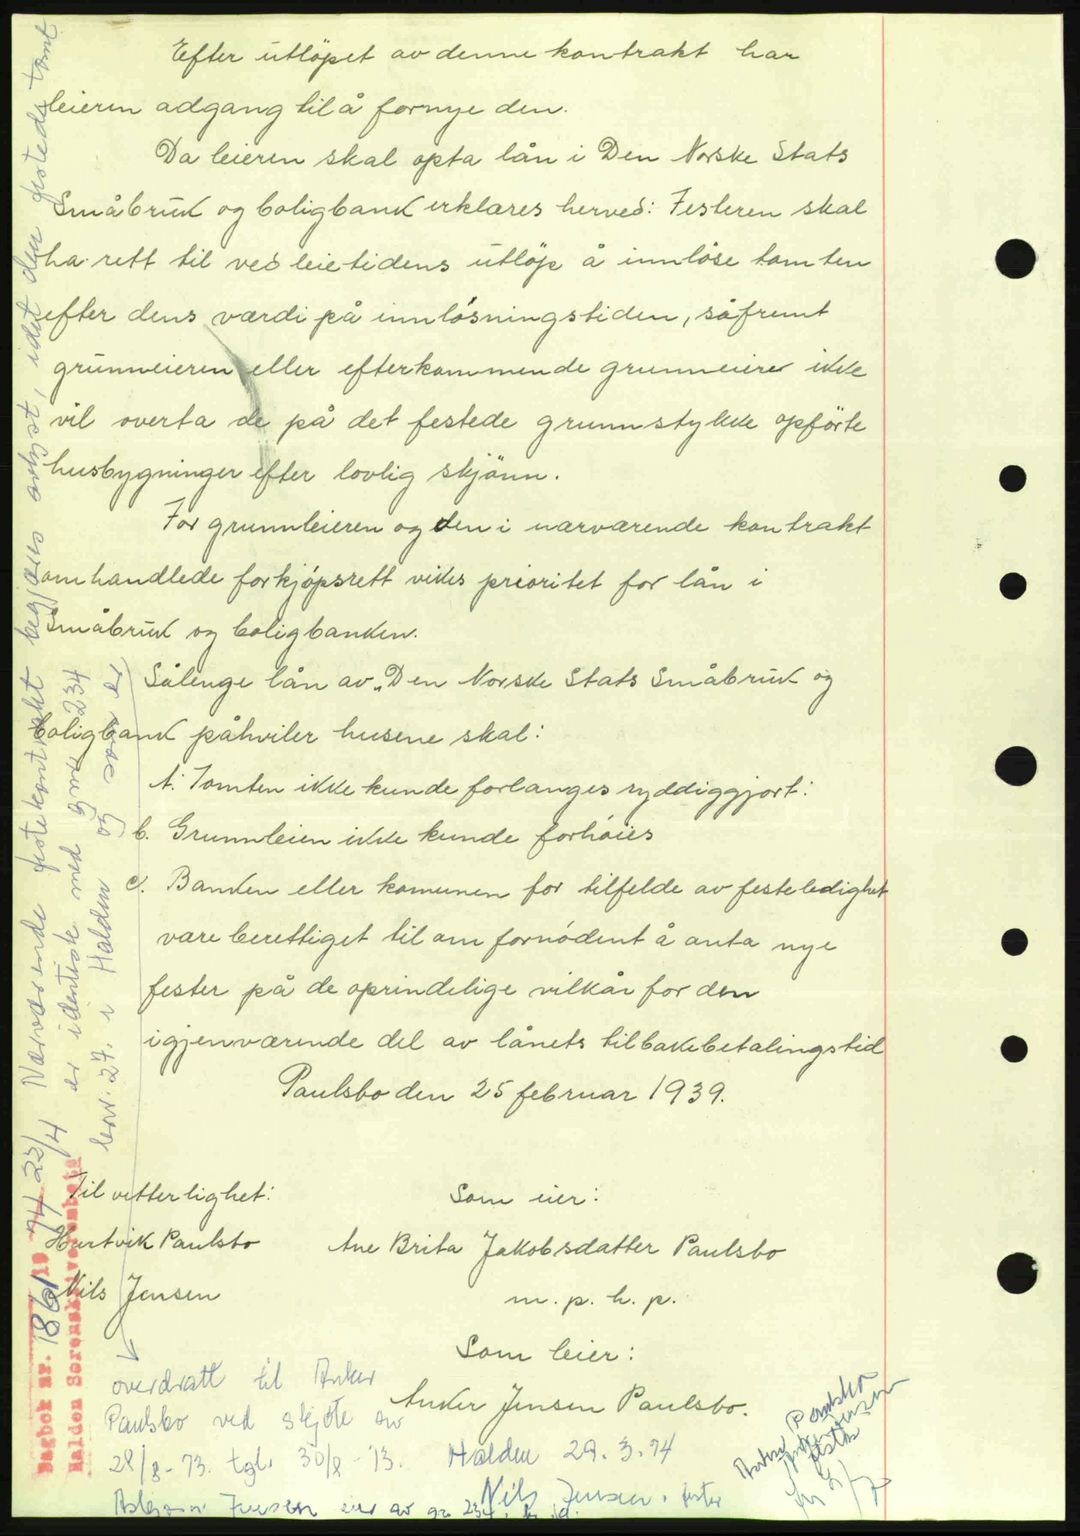 Efter utløpet av denne kontrakt har
leieren adgang til å fornye den.
Da leieren skal opta lån i Den Norske Stats
Småbruk og boligbank erklæres herved: Festeren skal
ha rett til ved leietidens utløp å innløse tomten
efter dens værdi på innløsningstiden, såfremt
grunneieren eller efterkommende grunneier ikke
vil overta de på det festede grunnstykke opførte
husbygninger efter lovlig skjönn.
For grunnleieren og den i nærværende kontrakt
omhandlede forkjøpsrett vikes prioritet for lån i
Småbruk og boligbanken.
Sålenge lån av „Den Norske Stats Småbruk og
boligbank påhviler husene skal:
A. Tomten ikke kunde forlanges ryddiggjort:
b. Grunnleien ikke kunde forhöies
c. Banken eller komunen for tilfelde av festeledighet
være berettiget til om fornödent å anta nye
fester på de oprindelige vilkår for den
igjenværende del av lånets tilbakebetalingstid
Paulsbo den 25 februar 1939.
Til vitterlighet:
Hartvik Paulsbo
Nils Jensen
Som eier:
Ane Brita Jakobsdatter Paulsbo
m. p. h. p.
Som leier:
Anker Jensen Paulsbo.
Nærværende festekontrakt begjæres avlyst, idet den festede tomt
er identisk med gnr 234
bnr. 27. i Halden og som er
overdratt til Anker
Paulsbo ved skjøte av
28/8-73. tgl. 30/8-73.
Halden 29.3.74
Nils Jensen, fester
Jensen eier av gn 234,
Dagbok nr. 1861 19 74 23/4
Halden Sorenskriverembete